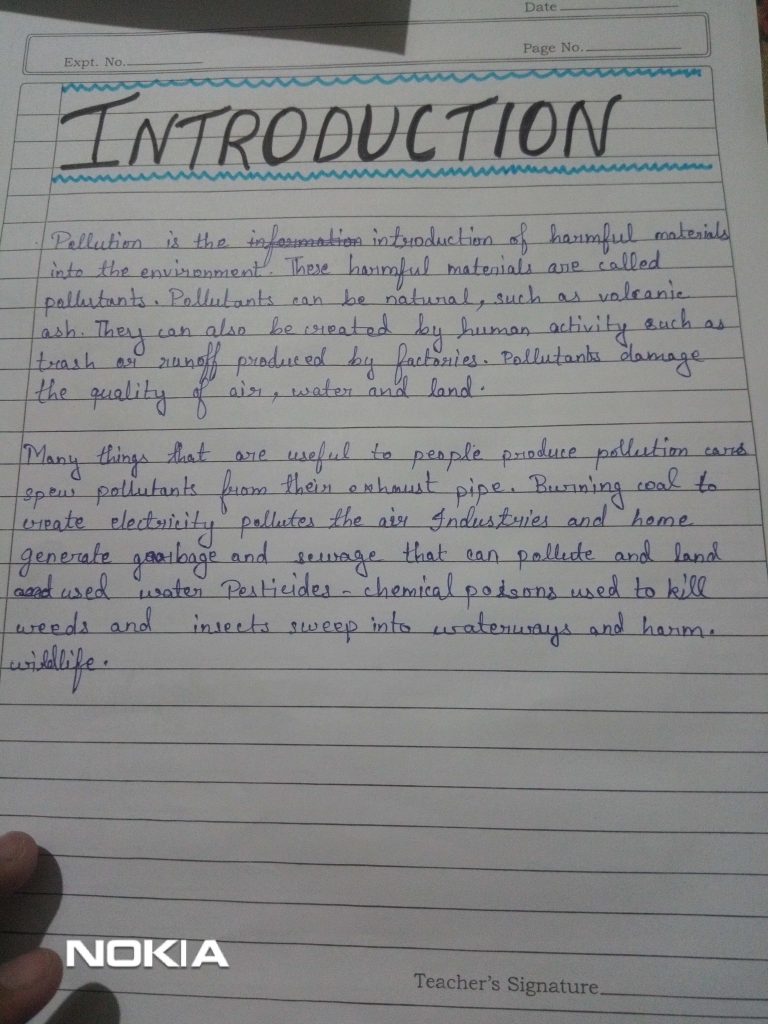 Date
Expt. No.
Page No.
INTRODUCTION
Pollution is the information introduction of harmful materials
into the environment. These harmful materials are called
pollutants. Pollutants can be natural, such as volcanic
ash. They can also be created by human activity such as
trash or runoff produced by factories. Pollutants damage
the quality of air, water and land.
Many things that are useful to people produce pollution cars
spew pollutants from their exhaust pipe. Burning coal to
create electricity pollutes the air Industries and home
generate garbage and sewage that can pollute and land
and used water Pesticides - chemical poisons used to kill
weeds and insects sweep into waterways and harm.
wildlife.
NOKIA
Teacher's Signature